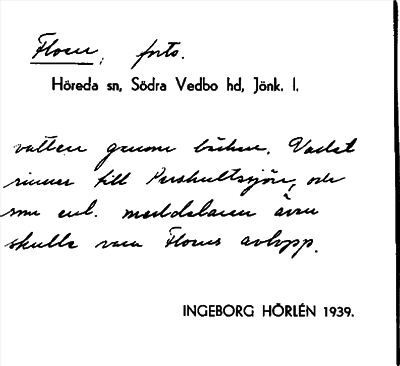 Floen, forts.
Höreda sn, Södra Vedbo hd, Jönk. l.
vatten genom bäcken. Vadet
rinner till Pershultsjön, och
som enl. meddelaren även
skulle vara Floens avlopp.
INGEBORG HÖRLÉN 1939.